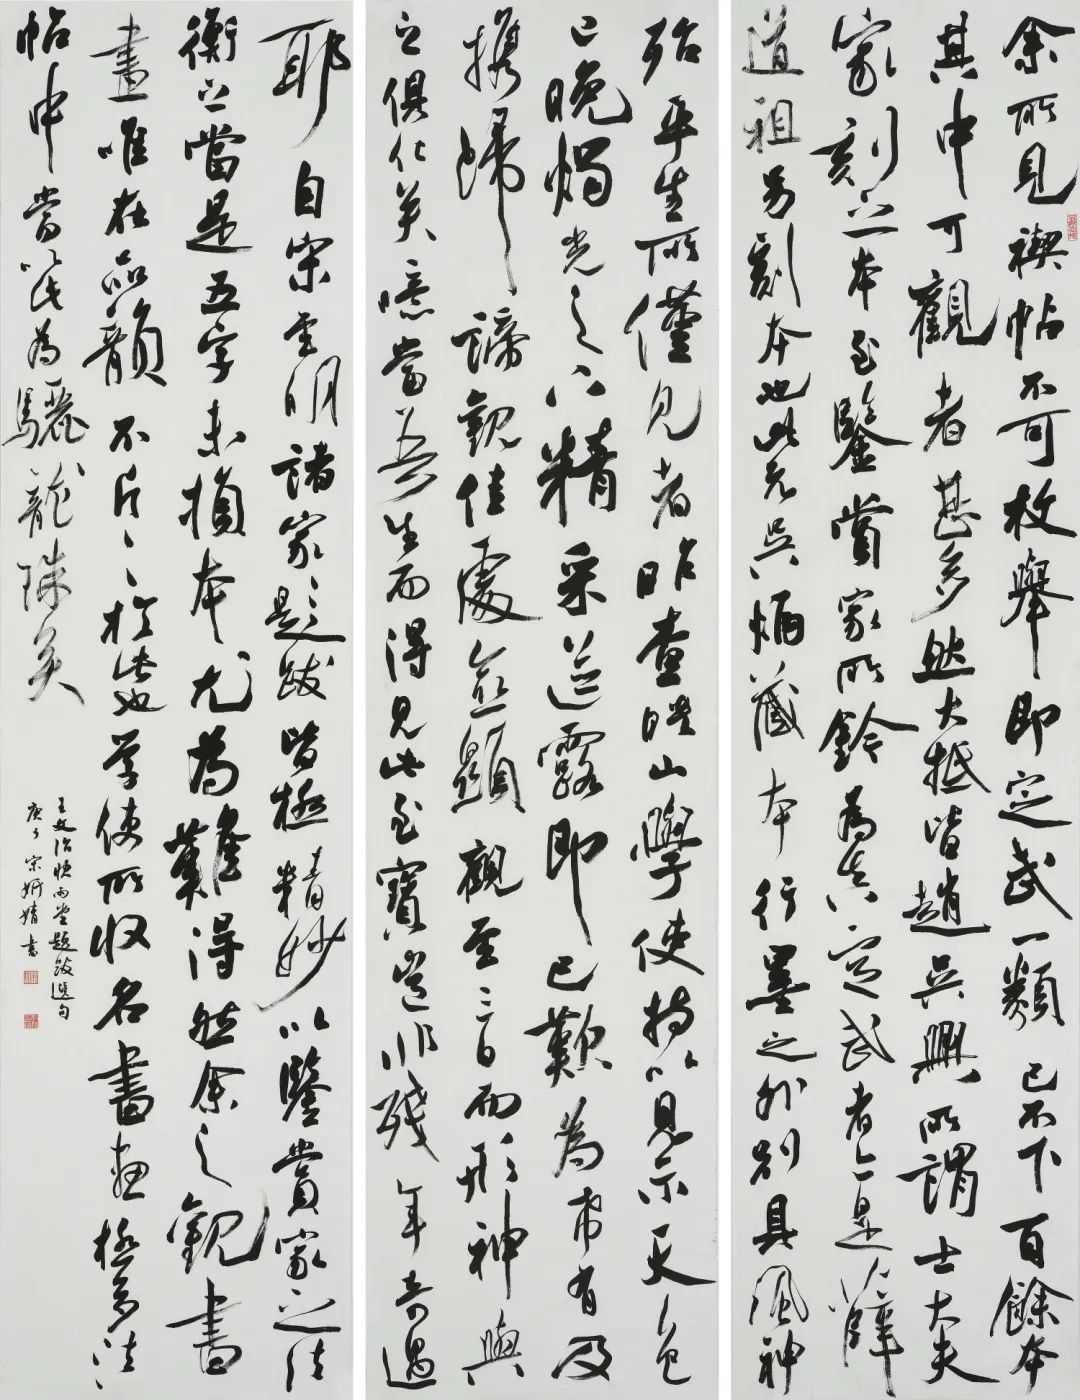 余所见禊帖不可枚舉即定武一類已不下百餘本
其中可觀者甚多然大抵皆趙吳興所謂士大夫
家刻一本至鑒賞家所矜為真定武者亦是薛
道祖另刻本也此元吳炳藏本行墨之外別具風神
殆平生所僅見者昨查映山學使持以見示天色
已晚燭光之下精采迸露即已歎為希有及
攜歸諦觀佳處益顯觀至三日而形神與
之俱化矣噫當吾生而得見此至寶豈非殘年奇遇
耶自宋至明諸家題跋皆極精妙以鑒賞家之法
衡之當是五字未損本尤為難得然余之觀書
畫唯在品韻不斤斤於此也學使所收名書畫極多法
帖中當以此為驪龍珠矣
王文治快雨堂題跋選句
庚子宋妍婧書